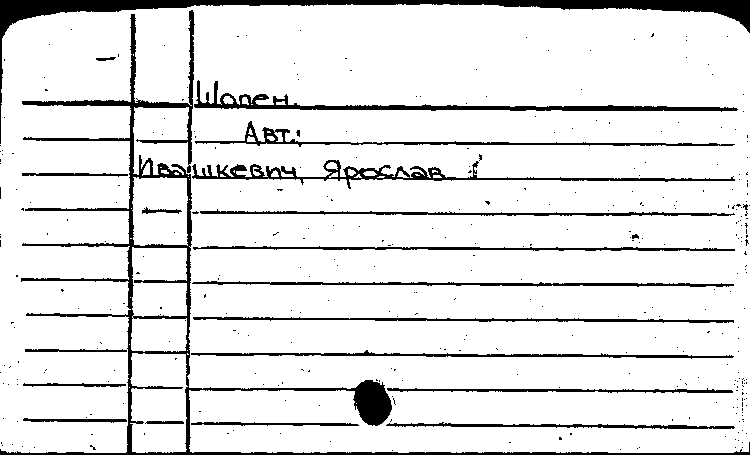 Шопен.
Авт.:
Ивашкевич, Ярослав